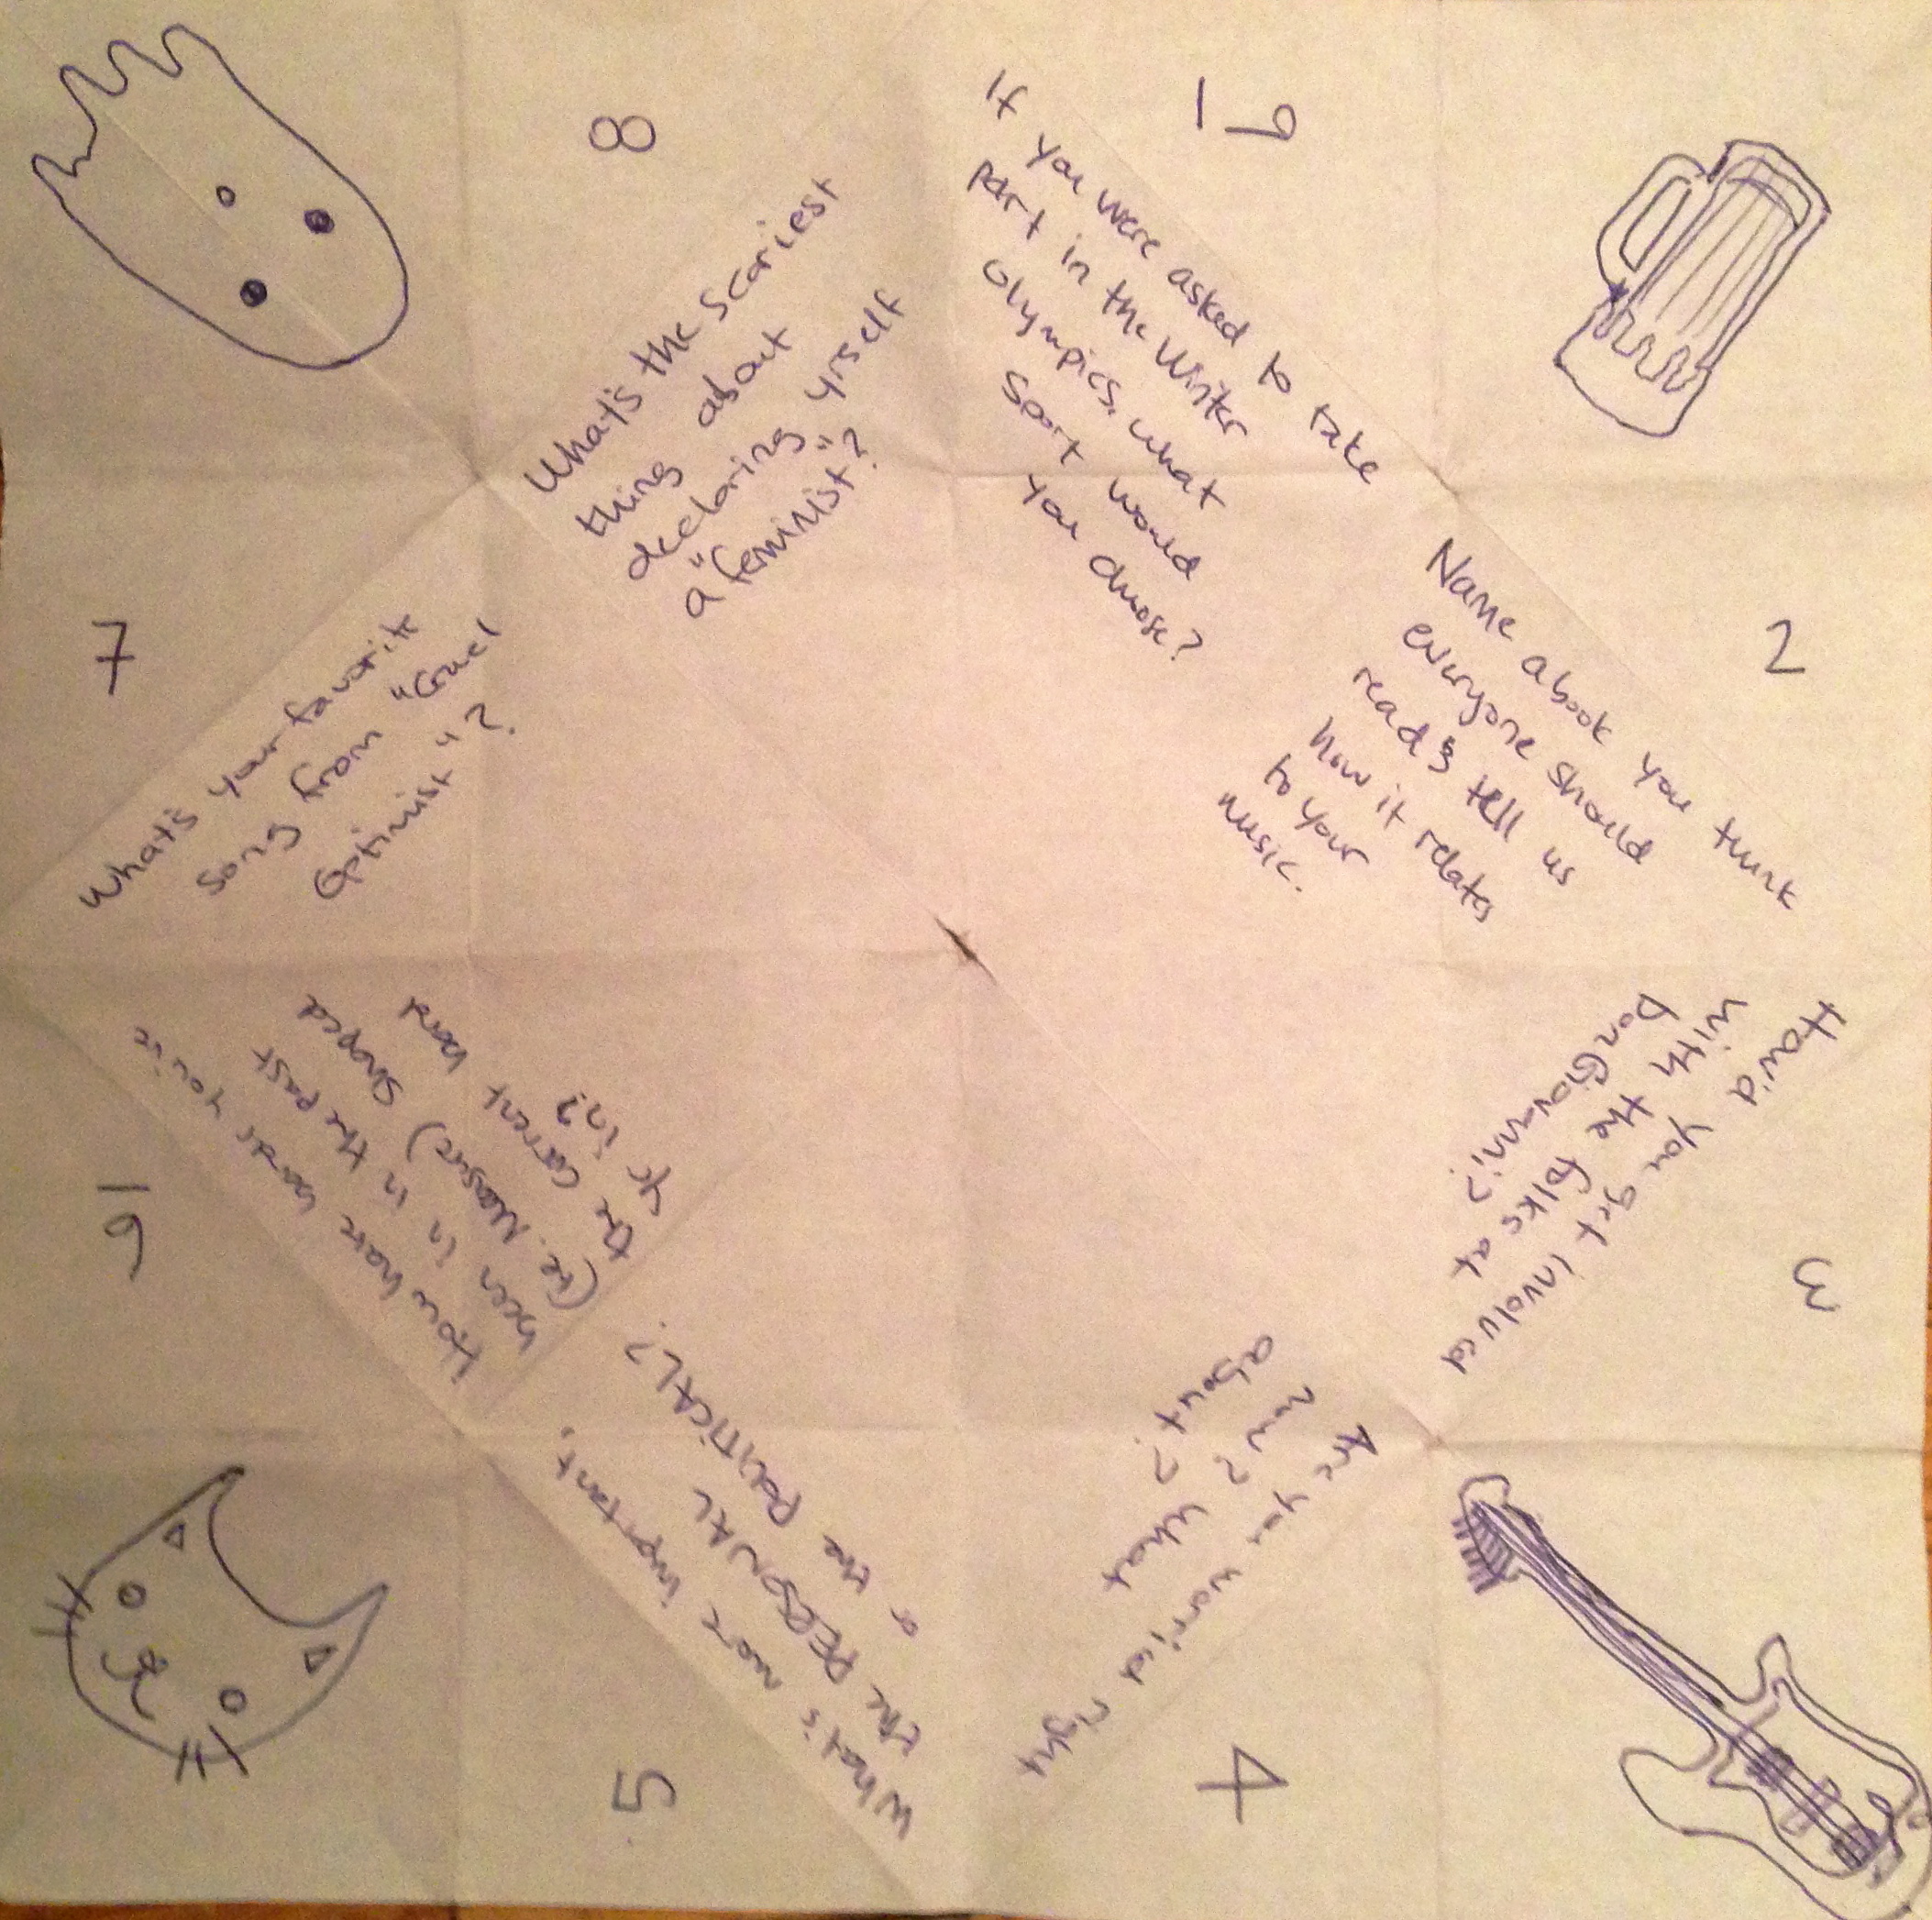 19
If you were asked to take
part in the Winter
Olympics, what
sport would
you choose?
2
Name a book you think
everyone should
read & tell us
how it relates
to your
music.
3
How'd you get involved
with the folks at
Don Giovanni?
4
Are you worried right
now? What
about?
5
What's more important,
the PERSONAL
or the POLITICAL?
16
How have bands you've
been in in the past
(ie. Measure) shaped
the current band
yr in?
7
What's your favorite
song from "Cruel
Optimist"?
8
What's the scariest
thing about
declaring yrself
a "feminist"?